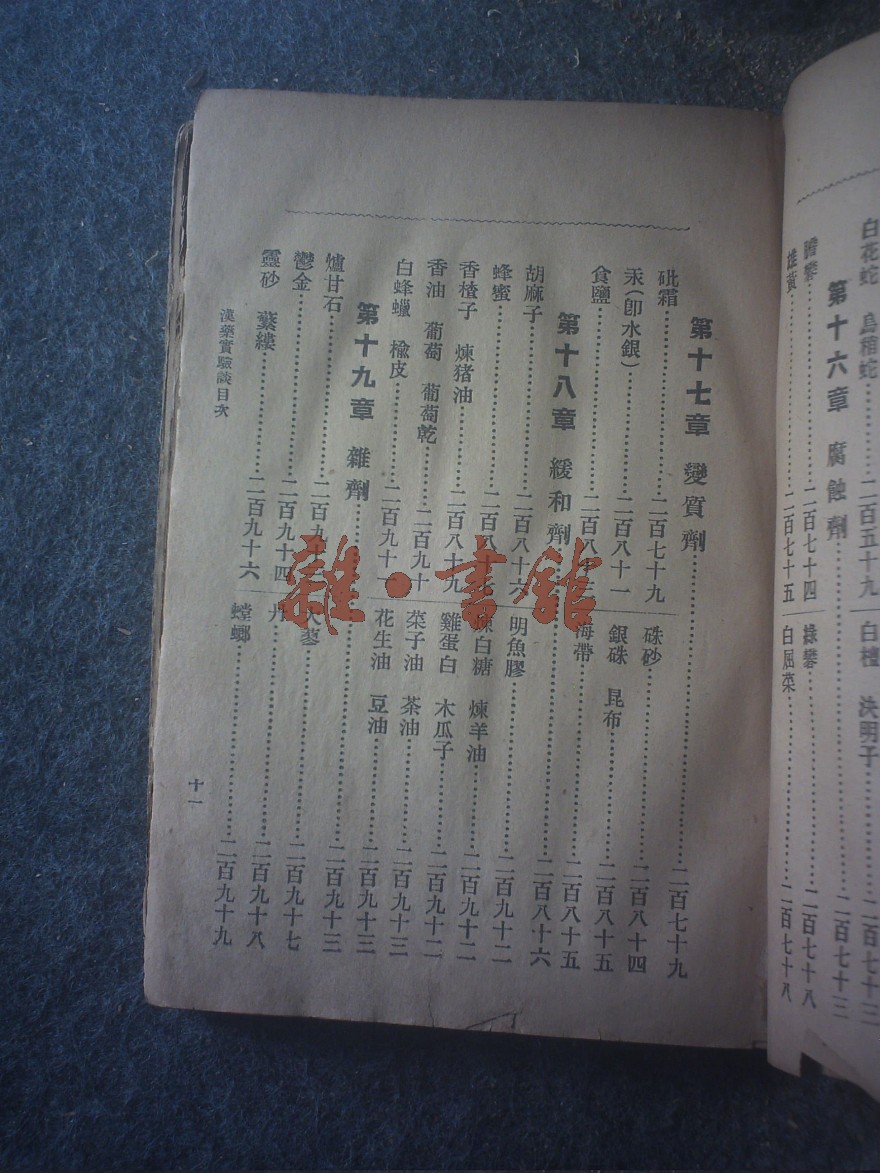 白花蛇 烏稍蛇……二百五十九
白檀 決明子……二百七十三
第十六章 腐蝕劑……二百七十三
膽礬……二百七十四
綠礬……二百七十八
雄黃……二百七十五
白屈菜……二百七十八
第十七章 變質劑……二百七十九
砒霜……二百七十九
硃砂……二百八十四
汞(卽水銀)……二百八十一
銀硃 昆布……二百八十五
食鹽……二百八十
海帶……二百八十五
第十八章 緩和劑……二百八十六
胡麻子……二百八十六
明魚膠……二百九十二
蜂蜜……二百八十
白糖 煉羊油……二百九十二
香楂子 煉猪油……二百八十九
雞蛋白 木瓜子……二百九十二
香油 葡萄 葡萄乾……二百九十
菜子油 茶油……二百九十三
白蜂蠟 楡皮……二百九十一
花生油 豆油……二百九十三
第十九章 雜劑……二百九十三
爐甘石……二百九十
蓼……二百九十七
鬱金……二百九十四
丹……二百九十八
靈砂 蘩縷……二百九十六
螳螂……二百九十九
漢藥實驗談目次
十一
雜·書館